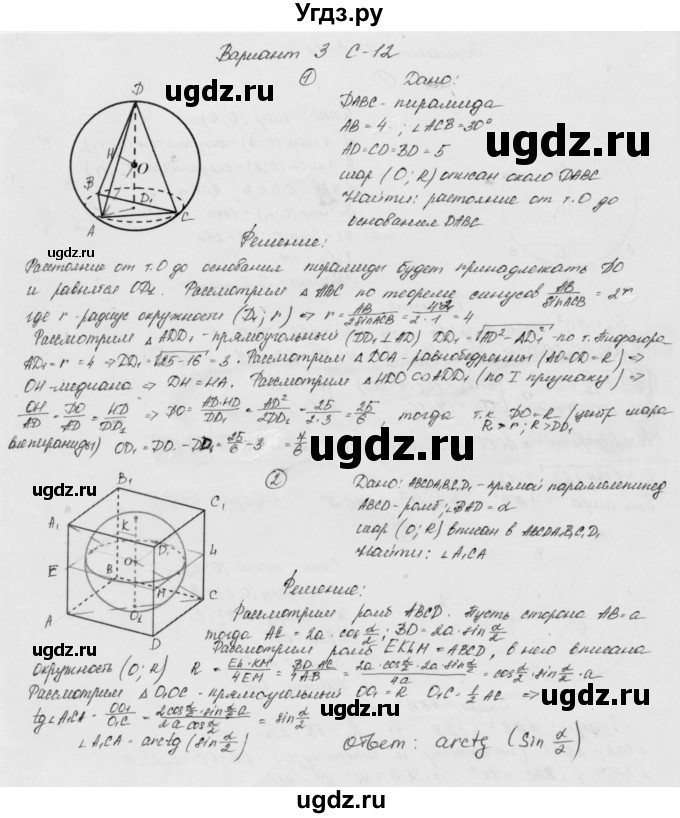 Угдз.ру
Вариант 3 С-12
1
Дано:
DABC - пирамида
AB = 4 ; ∠ACB = 30°
AD = CD = BD = 5
шар (O; R) описан около DABC
Найти: растояние от т. O до
основания DABC
Решение:
Растояние от т. O до основания пирамиды будет принадлежать DO
и равнятся OD₁. Рассмотрим △ ABC по теореме синусов AB/sinACB = 2r
где r - радиус окружности (D₁; r) => r = AB/2sinACB = 4·2/2·1 = 4
Рассмотрим △ ADD₁ - прямоугольный (DD₁ ⊥ AD) DD₁ = √AD² - AD₁² - по т. Пифагора
AD₁ = r = 4 => DD₁ = √25 - 16 = 3. Рассмотрим △ DOA - равнобедренный (AO = OD = R) =>
OH - медиана => DH = HA. Рассмотрим △ HDO ∾ ADD₁ (по I признаку) =>
OH/AD = DO/AD = HD/DD₁ => DO = AD·HD/DD₁ = AD²/2DD₁ = 25/2·3 = 25/6, тогда т.к. DO = R (центр шара
R > r; R > DD₁
вне пирамиды) OD₁ = DO - DD₁ = 25/6 - 3 = 7/6
2
Дано: ABCDA₁B₁C₁D₁ - прямой параллелепипед
ABCD - ромб; ∠BAD = α
шар (O; R) вписан в ABCDA₁B₁C₁D₁
Найти: ∠A₁CA
Решение:
Рассмотрим ромб ABCD. Пусть сторона AB = a
тогда AC = 2a · cos α/2; BD = 2a · sin α/2
Рассмотрим ромб EKLM = ABCD, в него вписана
окружность (O; R) R = EL · KM/4EM = BD · AC/4AB = 2a · cos α/2 · 2a · sin α/2/4a = cos α/2 · sin α/2 · a
Рассмотрим △ O₁OC - прямоугольный OO₁ = R O₁C = 1/2 AC =>
tg∠A₁CA = OO₁/O₁C = 2cos α/2 · sin α/2 a/2a cos α/2 = sin α/2
∠A₁CA = arctg (sin α/2)
Ответ: arctg (sin α/2)
D
H
O
B
D₁
A
C
B₁
C₁
A₁
K
D₁
L
E
O
B
M
C
A
O₁
D
ugdz.ru
ugdz.ru
ugdz.ru
ugdz.ru
ugdz.ru
ugdz.ru
ugdz.ru
ugdz.ru
ugdz.ru
ugdz.ru
ugdz.ru
ugdz.ru